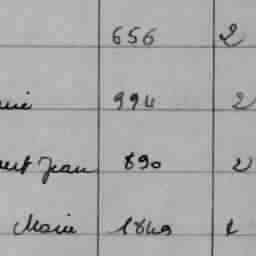 656 2
994 2
Jean 890 2
Marie 1849 1